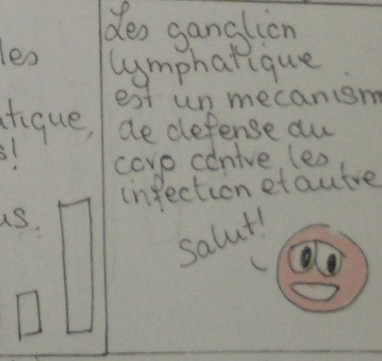 les
tique,
s!
us.
Les ganglion
lymphatique
est un mecanism
de defense du
corp contre les
infection et autre
Salut!